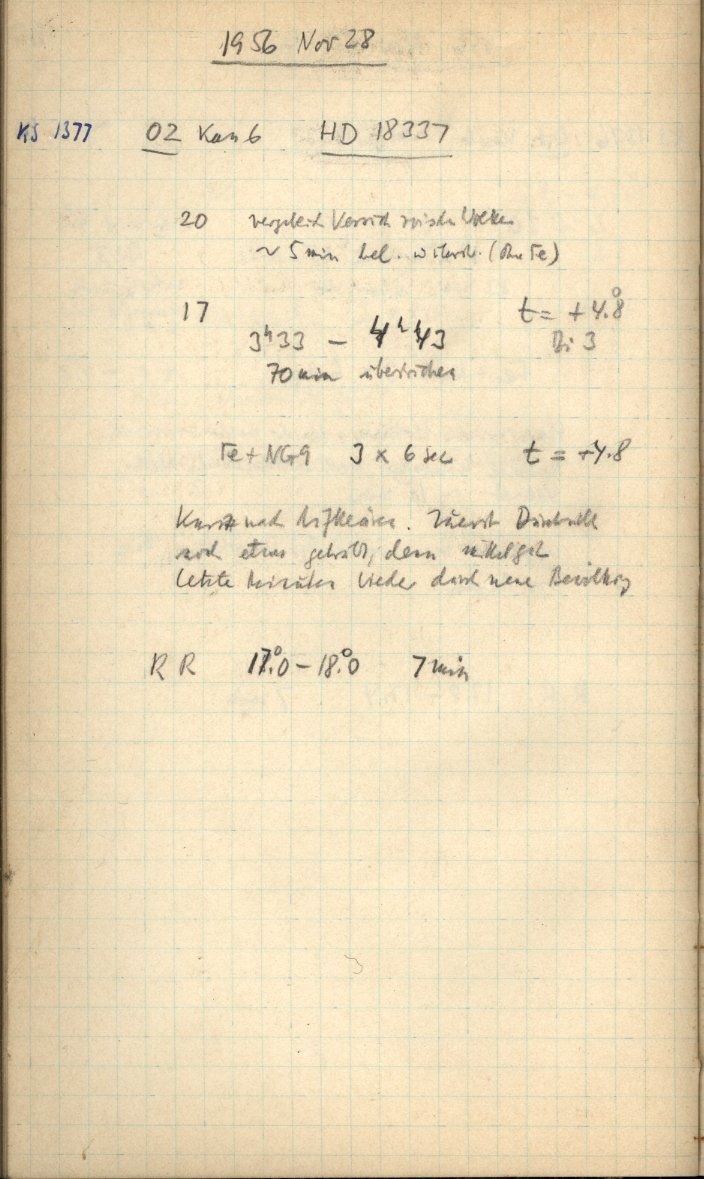 1956 Nov 28
KS 1377 OZ Kam 6 HD 18337
20 vergeblich Versuch zwischen Wolken
~ 5 min bel. (ohne Fe)
17 t = +4.°8
3ʰ33 – 4ʰ43 Bi 3
70 min überstrichen
Fe + NG9 3 x 6 sec t = +4.8
Kurz nach Aufklaren. Zuerst Durchsicht
noch etwas getrübt, dann mittelgut
letzte Minuten wieder durch neue Bewölkg
RR 17.°0 – 18.°0 7 min